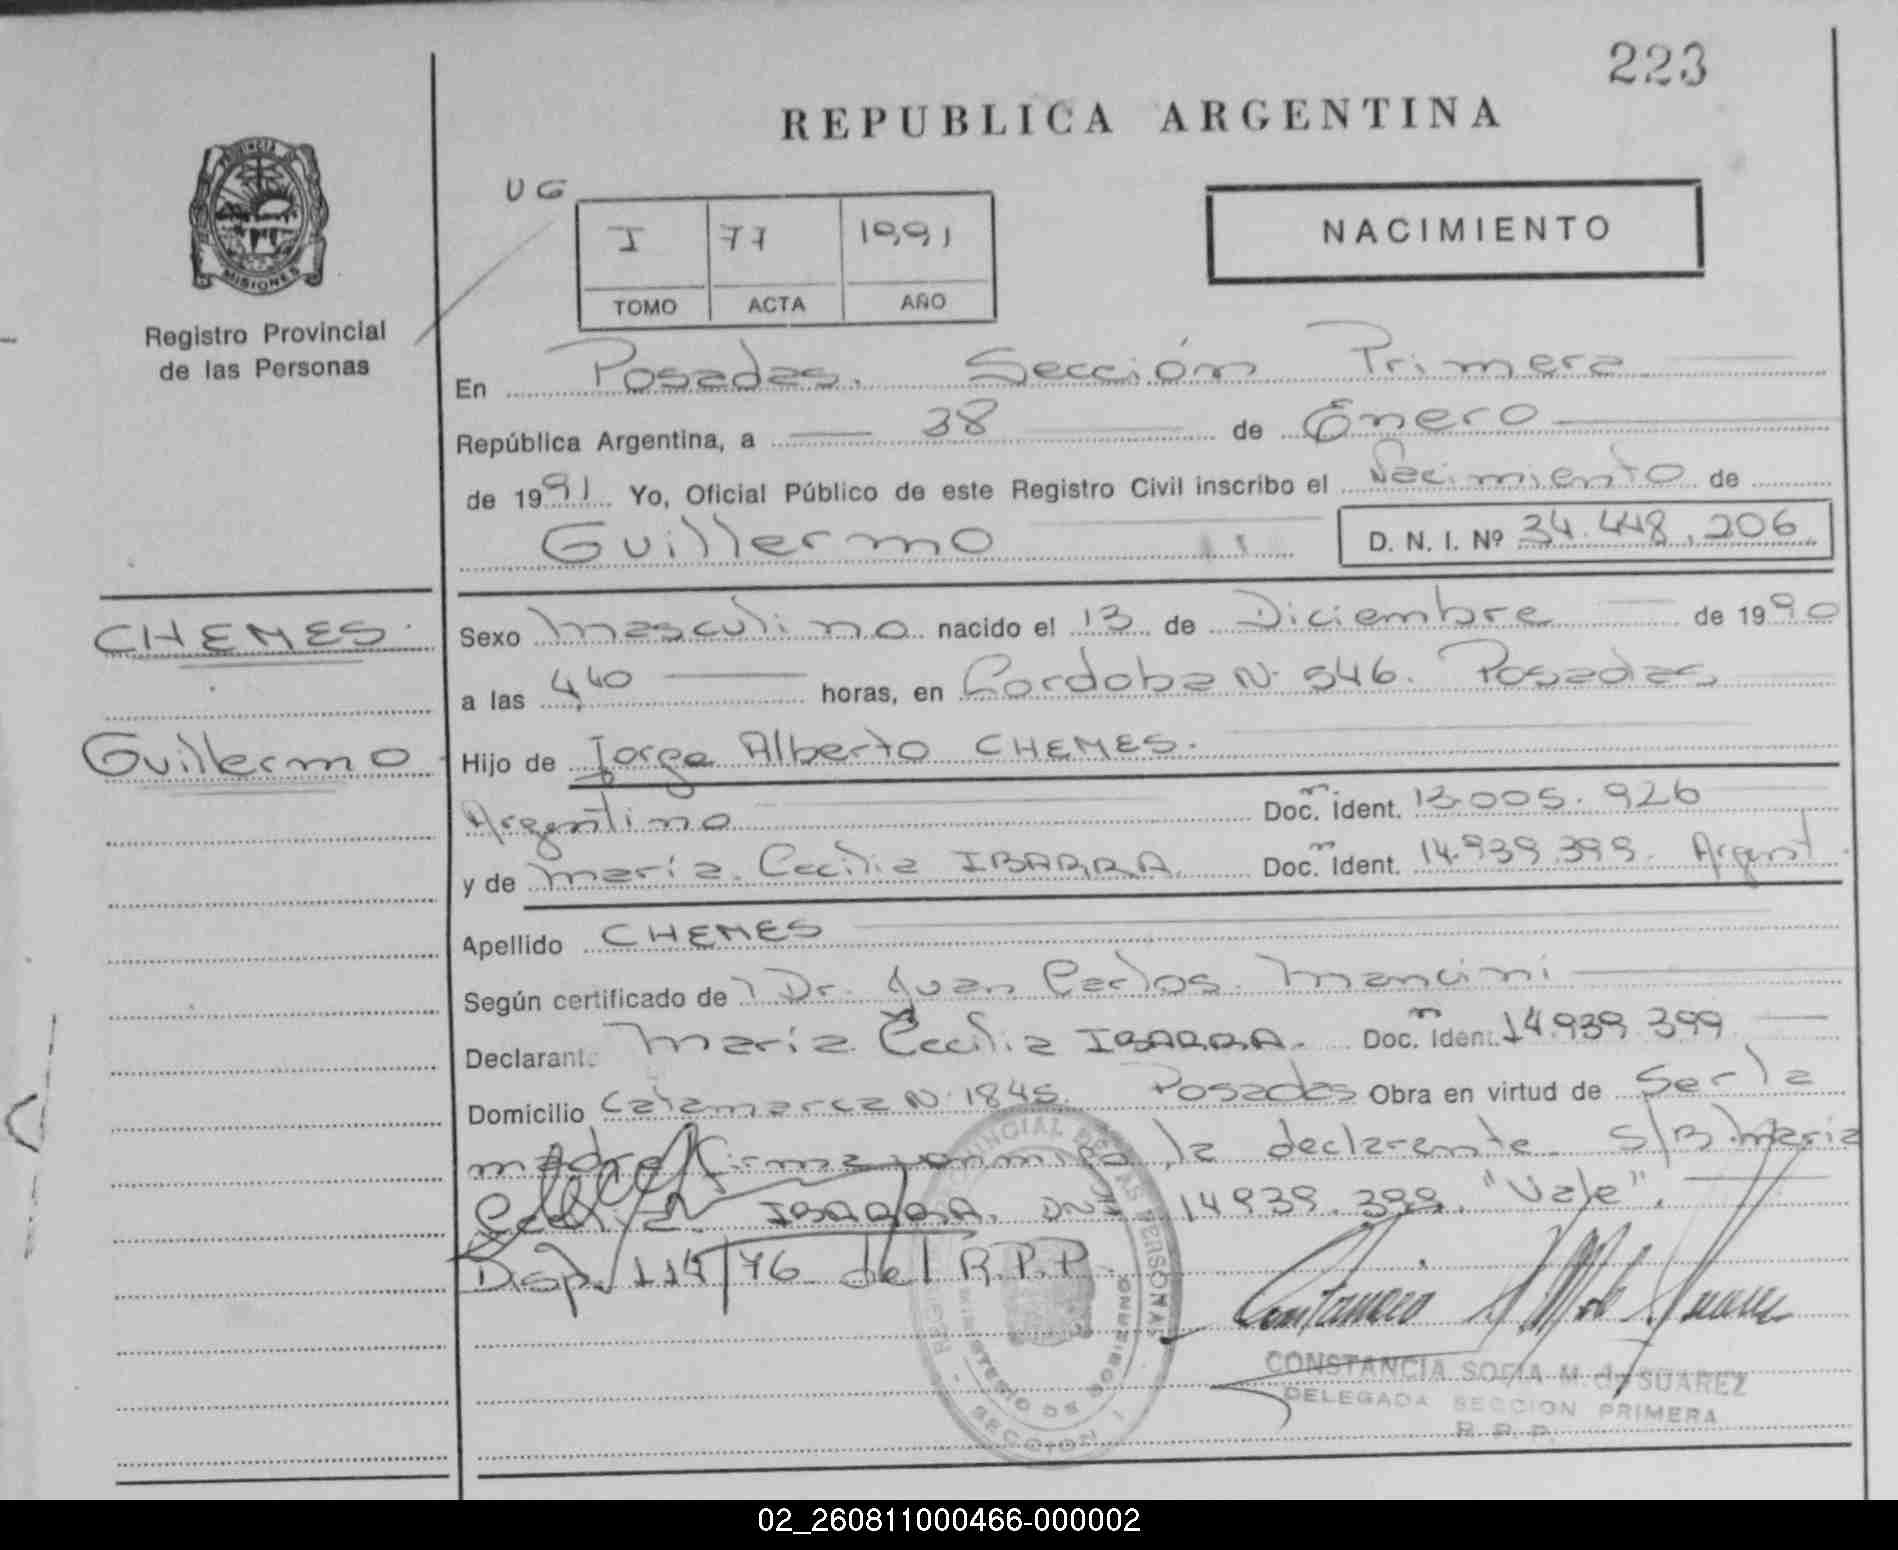 223
REPUBLICA ARGENTINA
PROVINCIA DE
MISIONES
Registro Provincial
de las Personas
UG
I 77 1991
TOMO ACTA AÑO
NACIMIENTO
En Posadas. Sección Primera
República Argentina, a 28 de Enero
de 1991 Yo, Oficial Público de este Registro Civil inscribo el Nacimiento de
Guillermo D. N. I. Nº 34.448.206
CHEMES.
Guillermo
Sexo Masculino nacido el 13 de Diciembre de 1990
a las 4,40 horas, en Cordoba N. 546. Posadas
Hijo de Jorge Alberto CHEMES.
Argentino Doc. Ident. 13.005.926
y de María Cecilia IBARRA. Doc. Ident. 14.939.399. Argent.
Apellido CHEMES
Según certificado de Dr. Juan Carlos Mancini
Declarant. María Cecilia IBARRA. Doc. Ident. 14.939.399
Domicilio Catamarca N. 1845. Posadas Obra en virtud de Ser la
madre firma conmigo la declarante. S/B. María
Cecilia IBARRA. DNI 14939.399. "Vale".
Disp. 114/76 del R.P.P.
CONSTANCIA SOFIA M. de SUAREZ
DELEGADA SECCION PRIMERA
R. P. P.
02_260811000466-000002